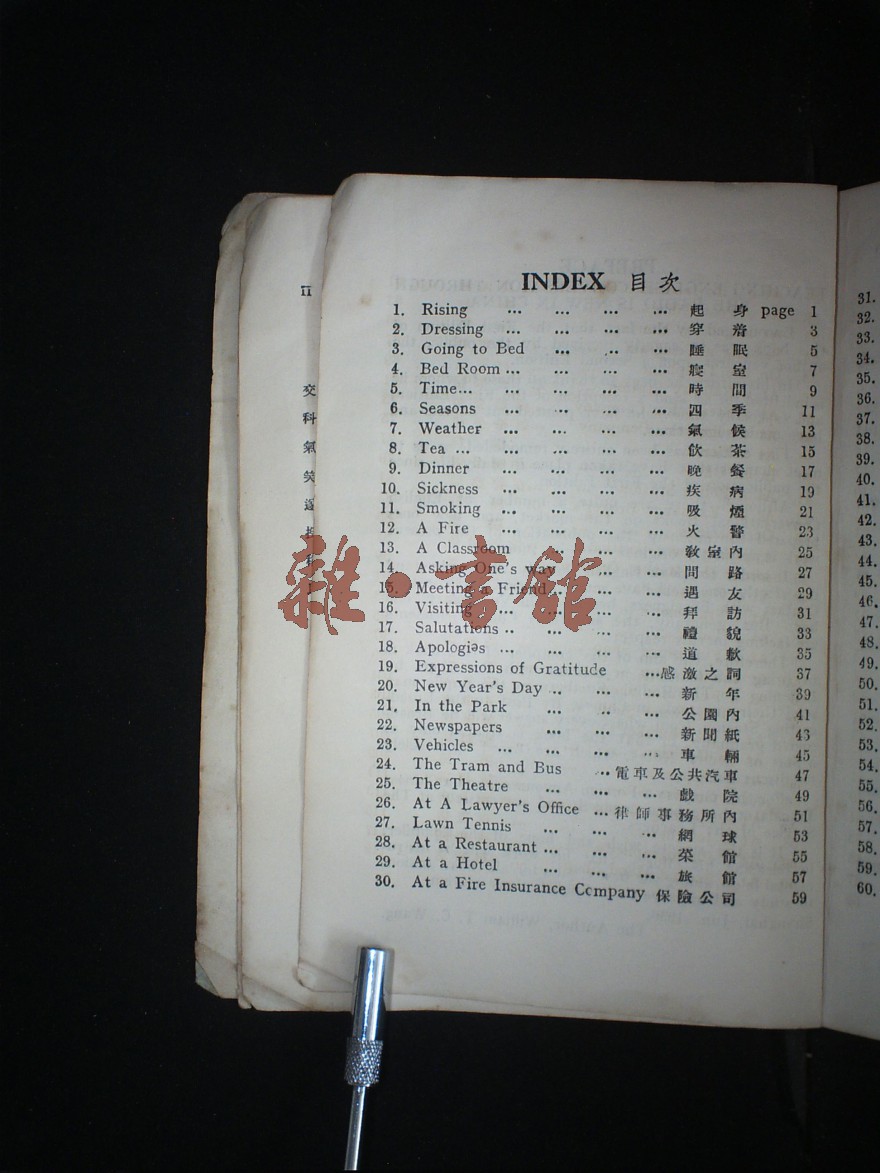 INDEX 目次
1. Rising ... ... ... ... 起身 page 1
2. Dressing ... ... ... ... 穿着 3
3. Going to Bed ... ... ... 睡眠 5
4. Bed Room ... ... ... ... 寢室 7
5. Time... ... ... ... ... 時間 9
6. Seasons ... ... ... ... 四季 11
7. Weather ... ... ... ... 氣候 13
8. Tea ... ... ... ... ... 飲茶 15
9. Dinner ... ... ... ... 晚餐 17
10. Sickness ... ... ... ... 疾病 19
11. Smoking ... ... ... ... 吸煙 21
12. A Fire ... ... ... ... 火警 23
13. A Classroom ... ... ... 敎室內 25
14. Asking One's way ... ... 問路 27
15. Meeting a Friend... ... ... 遇友 29
16. Visiting ... ... ... ... 拜訪 31
17. Salutations .. ... ... ... 禮貌 33
18. Apologies ... ... ... ... 道歉 35
19. Expressions of Gratitude ...感激之詞 37
20. New Year's Day .. ... ... 新年 39
21. In the Park ... ... ... 公園內 41
22. Newspapers ... ... ... 新聞紙 43
23. Vehicles ... ... ... ... 車輛 45
24. The Tram and Bus ... 電車及公共汽車 47
25. The Theatre ... ... ... 戲院 49
26. At A Lawyer's Office ... 律師事務所內 51
27. Lawn Tennis ... ... ... 網球 53
28. At a Restaurant ... ... ... 菜館 55
29. At a Hotel ... ... ... 旅館 57
30. At a Fire Insurance Company 保險公司 59
II
交
科
氣
笑
31.
32.
33.
34.
35.
36.
37.
38.
39.
40.
41.
42.
43.
44.
45.
46.
47.
48.
49.
50.
51.
52.
53.
54.
55.
56.
57.
58.
59.
60.
雜·書館